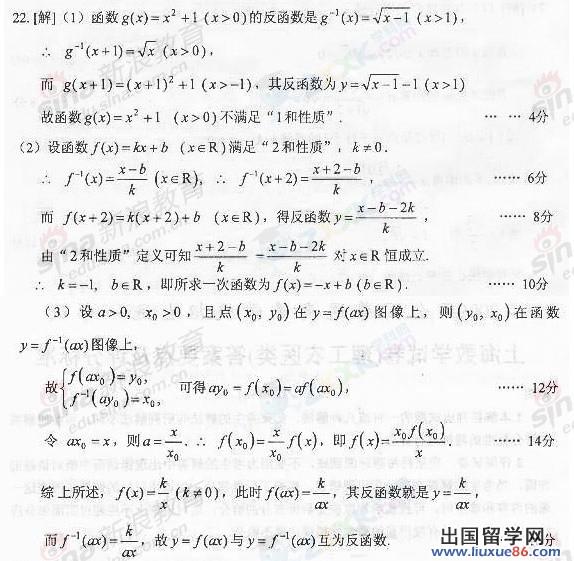 22.[解](1)函数 g(x)=x²+1 (x>0)的反函数是 g⁻¹(x)=√(x-1) (x>1),
∴ g⁻¹(x+1)=√x (x>0),
而 g(x+1)=(x+1)²+1 (x>-1),其反函数为 y=√(x-1)-1 (x>1)
故函数 g(x)=x²+1 (x>0)不满足“1和性质”. …… 4分
(2)设函数 f(x)=kx+b (x∈R)满足“2和性质”, k≠0.
∴ f⁻¹(x)=(x-b)/k (x∈R), ∴ f⁻¹(x+2)=(x+2-b)/k, …… 6分
而 f(x+2)=k(x+2)+b (x∈R),得反函数 y=(x-b-2k)/k, …… 8分
由“2和性质”定义可知 (x+2-b)/k=(x-b-2k)/k 对 x∈R 恒成立.
∴ k=-1, b∈R,即所求一次函数为 f(x)=-x+b (b∈R). …… 10分
(3)设 a>0, x₀>0,且点(x₀, y₀)在 y=f(ax)图像上,则(y₀, x₀)在函数
y=f⁻¹(ax)图像上,
故{f(ax₀)=y₀, f⁻¹(ay₀)=x₀, 可得 ay₀=f(x₀)=af(ax₀), …… 12分
令 ax₀=x,则 a=x/x₀. ∴ f(x₀)=(x/x₀)f(x),即 f(x)=x₀f(x₀)/x. …… 14分
综上所述, f(x)=k/x (k≠0),此时 f(ax)=k/(ax),其反函数就是 y=k/(ax),
而 f⁻¹(ax)=k/(ax),故 y=f(ax)与 y=f⁻¹(ax)互为反函数.
出国留学网
www.liuxue86.com
分
新浪教育
sina